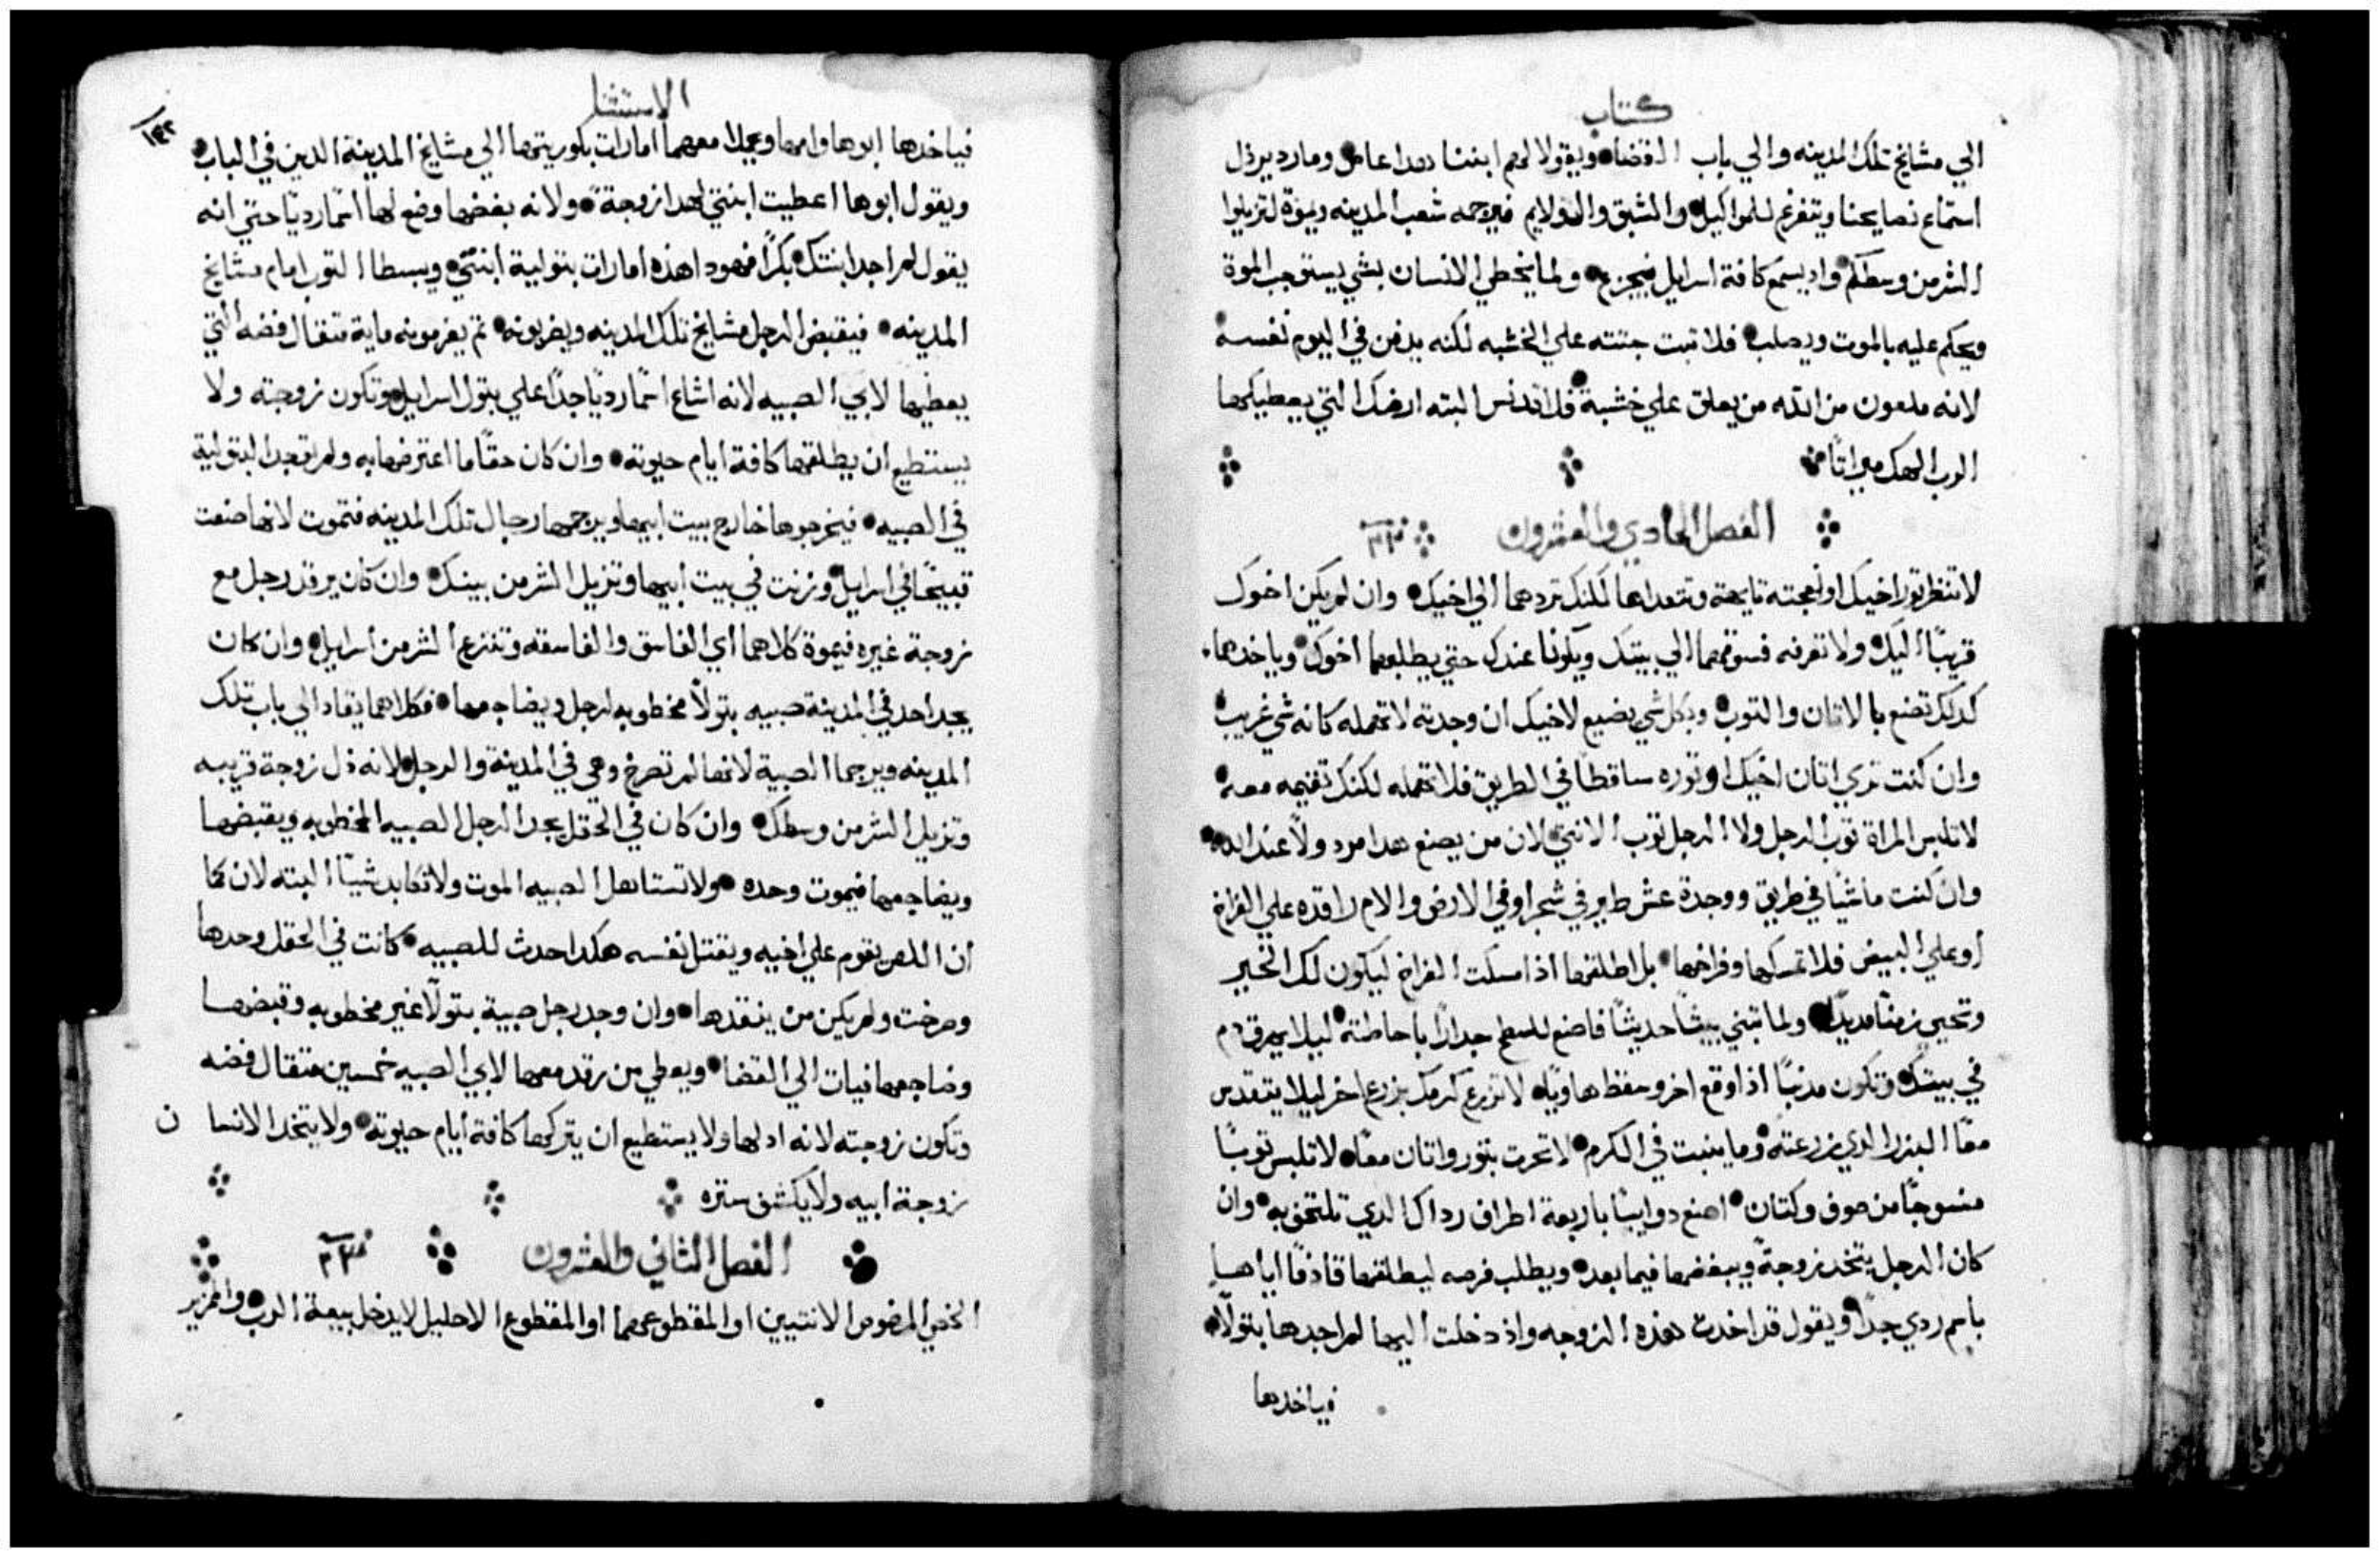 كتاب
الي مشايخ تلك المدينه والي باب القضا ويقولا لهم ابننا هدا عاص ومارد يرذل
استماع نصايحنا ويتفرغ للمواكيل والشبق والولايم فيرجمه شعب المدينه ويموة لتزيلوا
الشر من وسطكم واد يسمع كافة اسرايل فيجزع ولما يخطي الانسان بشي يستوجب الموة
ويحكم عليه بالموت ويصلب فلا تبت جتته علي الخشبه لكنه يدفن في اليوم نفسه
لانه ملعون من الله من يعلق علي خشبة فلا تدنس البته ارضك التي يعطيكها
الرب الهك ميراتًا
الفصل الحادي والعشرون
لا تنظر تور اخيك او نعجته تايهة وتتعداها لكنك تردهما الي اخيك وان لم يكن اخوك
قريبًا اليك ولا تعرفه فسوقهما الي بيتك ويكونا عندك حتي يطلبهما اخوك وياخدها
كدلك تصنع بالاتان والتوب وبكل شي يضيع لاخيك ان وجدته لا تهمله كانه شي غريب
وان كنت تري اتان اخيك او توره ساقطًا في الطريق فلا تهمله لكنك تقيمه معه
لا تلبس المراة توب الرجل ولا الرجل توب الانتي لان من يصنع هدا مردولًا عند الله
وان كنت ماشيًا في طريق ووجدة عش طير في شجر او في الارض والام راقده علي الفراخ
او علي البيض فلا تمسكها وفراخها بل اطلقها اذا مسكت الفراخ ليكون لك الخير
وتحيي زمنًا مديدًا ولما تبني بيتًا حديثًا فاصنع للسطح جدارًا باحاطته ليلا يهرق دم
في بيتك وتكون مدنبًا اذا وقع اخر وسقط هاويًا لا تزرع كرمك بزرع اخر ليلا يتقدس
معًا البزر الدي زرعته وما ينبت في الكرم لا تحرت بتور واتان معًا لا تلبس توبًا
منسوجًا من صوف وكتان اصنع دوايبًا باربعة اطراف رداك الدي تلتحف به وان
كان الرجل يتخد زوجة ويبغضها فيما بعد ويطلب فرصه ليطلقها قاذفًا اياها
باسم ردي جدًا ويقول قد اخدت هذه الزوجه واذ دخلت اليها لم اجدها بتولًا
فياخدها
الاستثنا
١٤٢
فياخدها ابوها وامها ويحملا معهما امارات بكوريتها الي مشايخ المدينة الدين في الباب
ويقول ابوها اعطيت ابنتي لهدا زوجة ولانه بغضها وضع لها اسمًا رديًا حتي انه
يقول لم اجد ابنتك بكرًا فهودا هذه امارات بتولية ابنتي ويبسطا التوب امام مشايخ
المدينه فيقبض الرجل مشايخ تلك المدينه ويضربونه تم يغرمونه ماية متقال فضه التي
يعطيها لابي الصبيه لانه اشاع اسمًا رديًا جدًا علي بتول اسرايل وتكون زوجته ولا
يستطيع ان يطلقها كافة ايام حيوته وان كان حقًا ما اعترضها به ولم تجد البتولية
في الصبيه فيخرجوها خارج بيت ابيها ويرجمها رجال تلك المدينه فتموت لانها صنعت
قبيحًا في اسرايل وزنت في بيت ابيها وتزيل الشر من بينك وان كان يرقد رجل مع
زوجة غيره فيموة كلاهما اي الفاسق والفاسقه وتنزع الشر من اسرايل وان كان
يجد احد في المدينة صبيه بتولًا مخطوبه لرجل ويضاجعها فكلاهما يقادا الي باب تلك
المدينه ويرجما الصبية لانها لم تصرخ وهي في المدينة والرجل لانه ذل زوجة قريبه
وتزيل الشر من وسطك وان كان في الحقل يجد الرجل الصبيه المخطوبه ويقبضها
ويضاجعها فيموت وحده ولا تستاهل الصبيه الموت ولا تكابد شيًا البته لان كما
ان اللص يقوم علي اخيه ويقتل نفسه هكدا حدث للصبيه كانت في الحقل وحدها
وصرخت ولم يكن من ينقدها وان وجد رجل صبية بتولًا غير مخطوبه وقبضها
وضاجعها فيات الي القضا ويعطي من رقد معها لابي الصبيه خمسين متقال فضه
وتكون زوجته لانه ادلها ولا يستطيع ان يتركها كافة ايام حيوته ولا يتخد الانسان
زوجة ابيه ولا يكشف ستره
الفصل الثاني والعشرون
الخصي المرضوض الانتيين او المقطوعهما او المقطوع الاحليل لا يدخل بيعة الرب والمزير